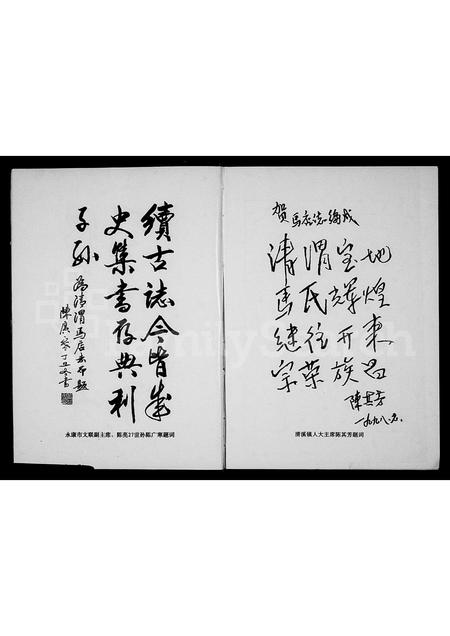 續古誌今皆成
史集書存典利
子孙
为清渭马店志本题
陈广寒丁丑冬書
永康市文联副主席、陈亮27世孙陈广寒题词
贺马店志编成
清渭宝地
马氏辉煌
继往开来
宗荣族昌
陈其芳
一九九八.
清溪镇人大主席陈其芳题词
FamilySearch